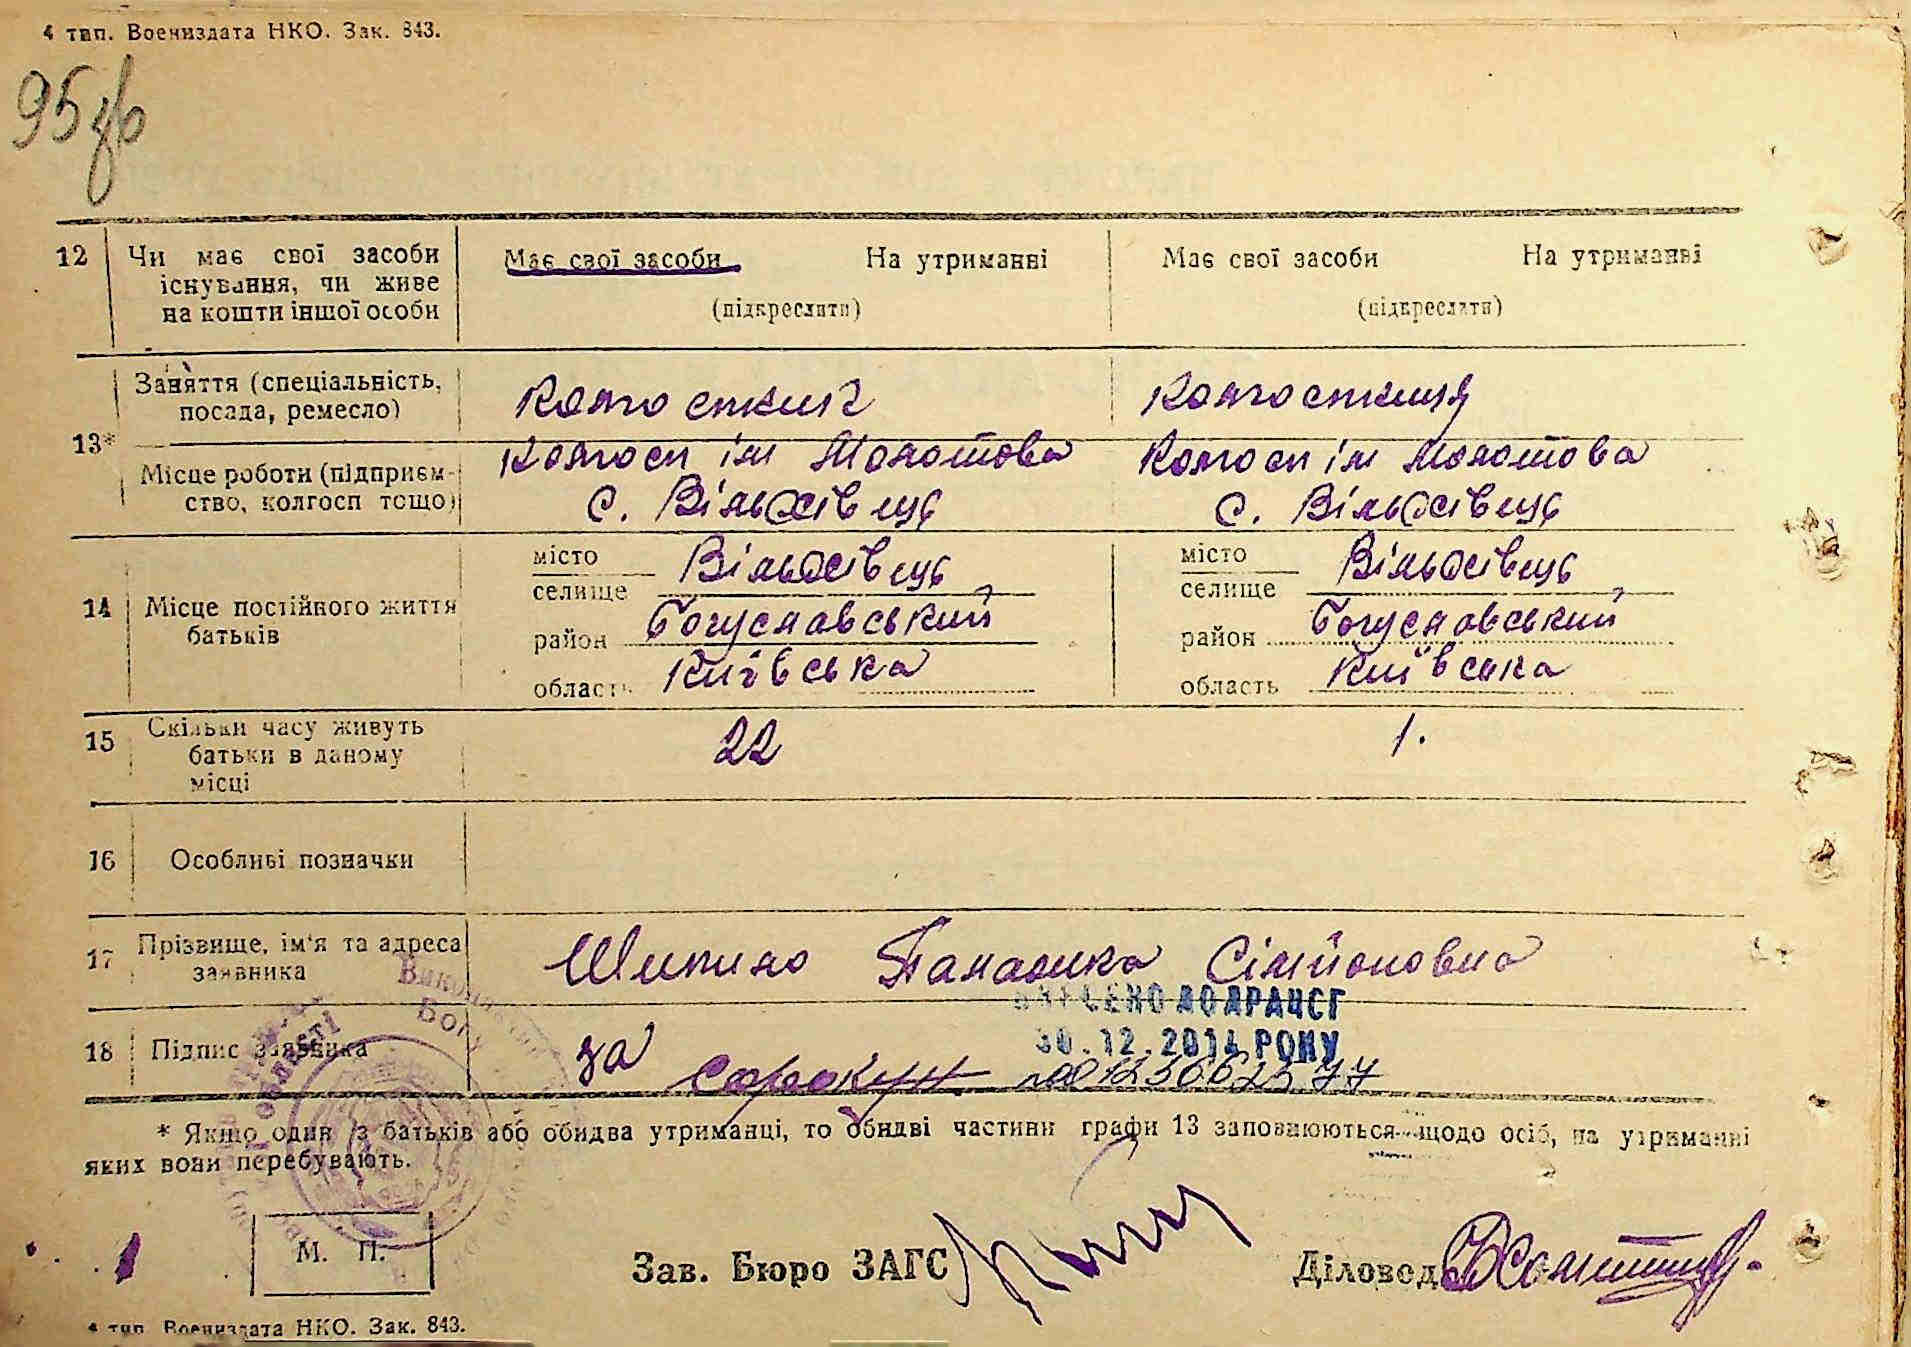 4 тип. Воениздата НКО. Зак. 843.
95 зв
12 Чи має свої засоби існування, чи живе на кошти іншої особи
Має свої засоби На утриманні
(підкреслити)
Має свої засоби На утриманні
(підкреслити)
13* Заняття (спеціальність, посада, ремесло)
Колгоспник
Колгоспниця
Місце роботи (підприємство, колгосп тощо)
Колгосп ім Молотова
с. Вільхівець
Колгосп ім Молотова
с. Вільхівець
14 Місце постійного життя батьків
місто
селище Вільхівець
район Богуславський
область Київська
місто
селище Вільхівець
район Богуславський
область Київська
15 Скільки часу живуть батьки в даному місці
22
1.
16 Особливі позначки
17 Прізвище, ім'я та адреса заявника
Шипило Палажка Сімйоновна
ВНЕСЕНО ДО ДРАЦСГ
30.12.2014 РОКУ
18 Підпис заявника
за Сорокун 00123662577
* Якщо один із батьків або обидва утриманці, то обидві частини графи 13 заповнюються щодо осіб, на утриманні
яких вони перебувають.
М. П.
Зав. Бюро ЗАГС
Діловод
4 тип. Воениздата НКО. Зак. 843.